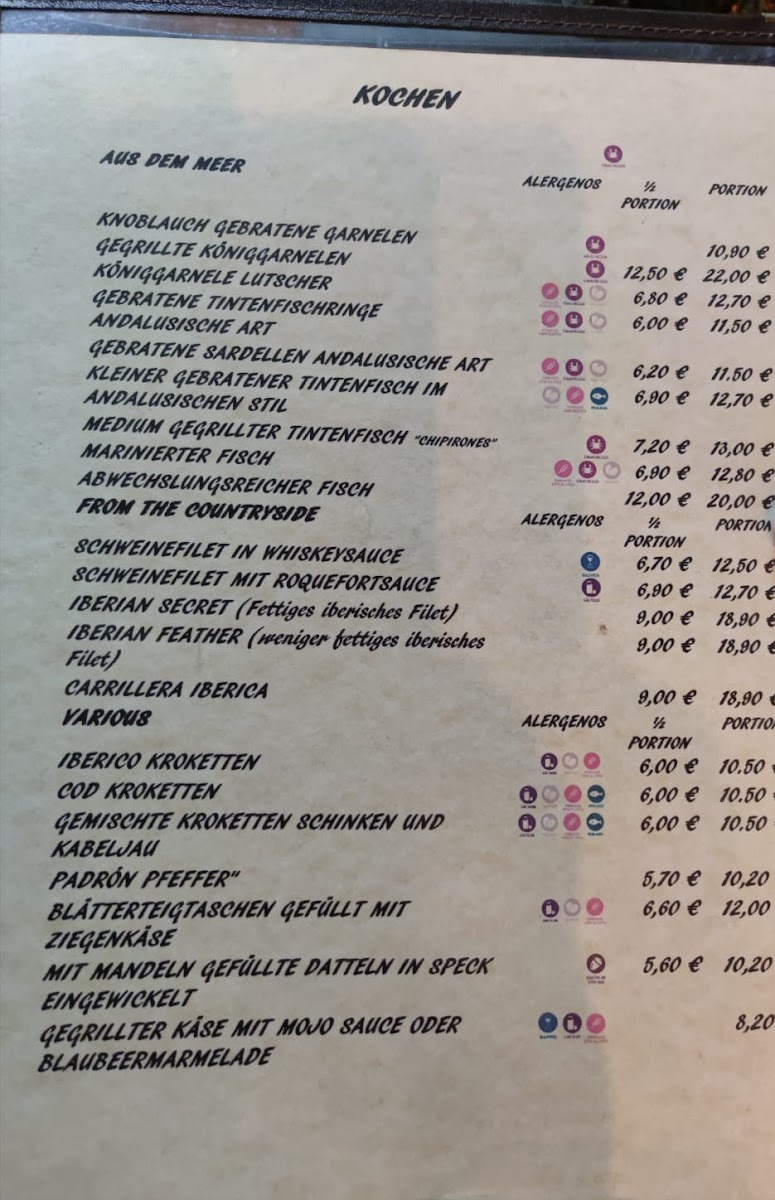 KOCHEN
AUS DEM MEER
ALERGENOS ½ PORTION PORTION
KNOBLAUCH GEBRATENE GARNELEN 10,90 €
GEGRILLTE KÖNIGGARNELEN 12,50 € 22,00 €
KÖNIGGARNELE LUTSCHER 6,80 € 12,70 €
GEBRATENE TINTENFISCHRINGE
ANDALUSISCHE ART 6,00 € 11,50 €
GEBRATENE SARDELLEN ANDALUSISCHE ART 6,20 € 11.50 €
KLEINER GEBRATENER TINTENFISCH IM
ANDALUSISCHEN STIL 6,90 € 12,70 €
MEDIUM GEGRILLTER TINTENFISCH "CHIPIRONES" 7,20 € 13,00 €
MARINIERTER FISCH 6,90 € 12,80 €
ABWECHSLUNGSREICHER FISCH 12,00 € 20,00 €
FROM THE COUNTRYSIDE ALERGENOS ½ PORTION PORTION
SCHWEINEFILET IN WHISKEYSAUCE 6,70 € 12,50 €
SCHWEINEFILET MIT ROQUEFORTSAUCE 6,90 € 12,70 €
IBERIAN SECRET (Fettiges iberisches Filet) 9,00 € 18,90 €
IBERIAN FEATHER (weniger fettiges iberisches 9,00 € 18,90 €
Filet)
CARRILLERA IBERICA 9,00 € 18,90 €
VARIOUS ALERGENOS ½ PORTION PORTION
IBERICO KROKETTEN 6,00 € 10.50
COD KROKETTEN 6,00 € 10.50
GEMISCHTE KROKETTEN SCHINKEN UND 6,00 € 10.50
KABELJAU
PADRÓN PFEFFER" 5,70 € 10,20
BLÄTTERTEIGTASCHEN GEFÜLLT MIT 6,60 € 12,00
ZIEGENKÄSE
MIT MANDELN GEFÜLLTE DATTELN IN SPECK 5,60 € 10,20
EINGEWICKELT
GEGRILLTER KÄSE MIT MOJO SAUCE ODER 8,20
BLAUBEERMARMELADE